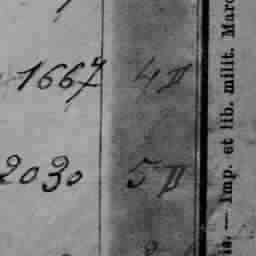 1667 4 D
2030 5 D
is. — Imp. et lib. milit. Marc